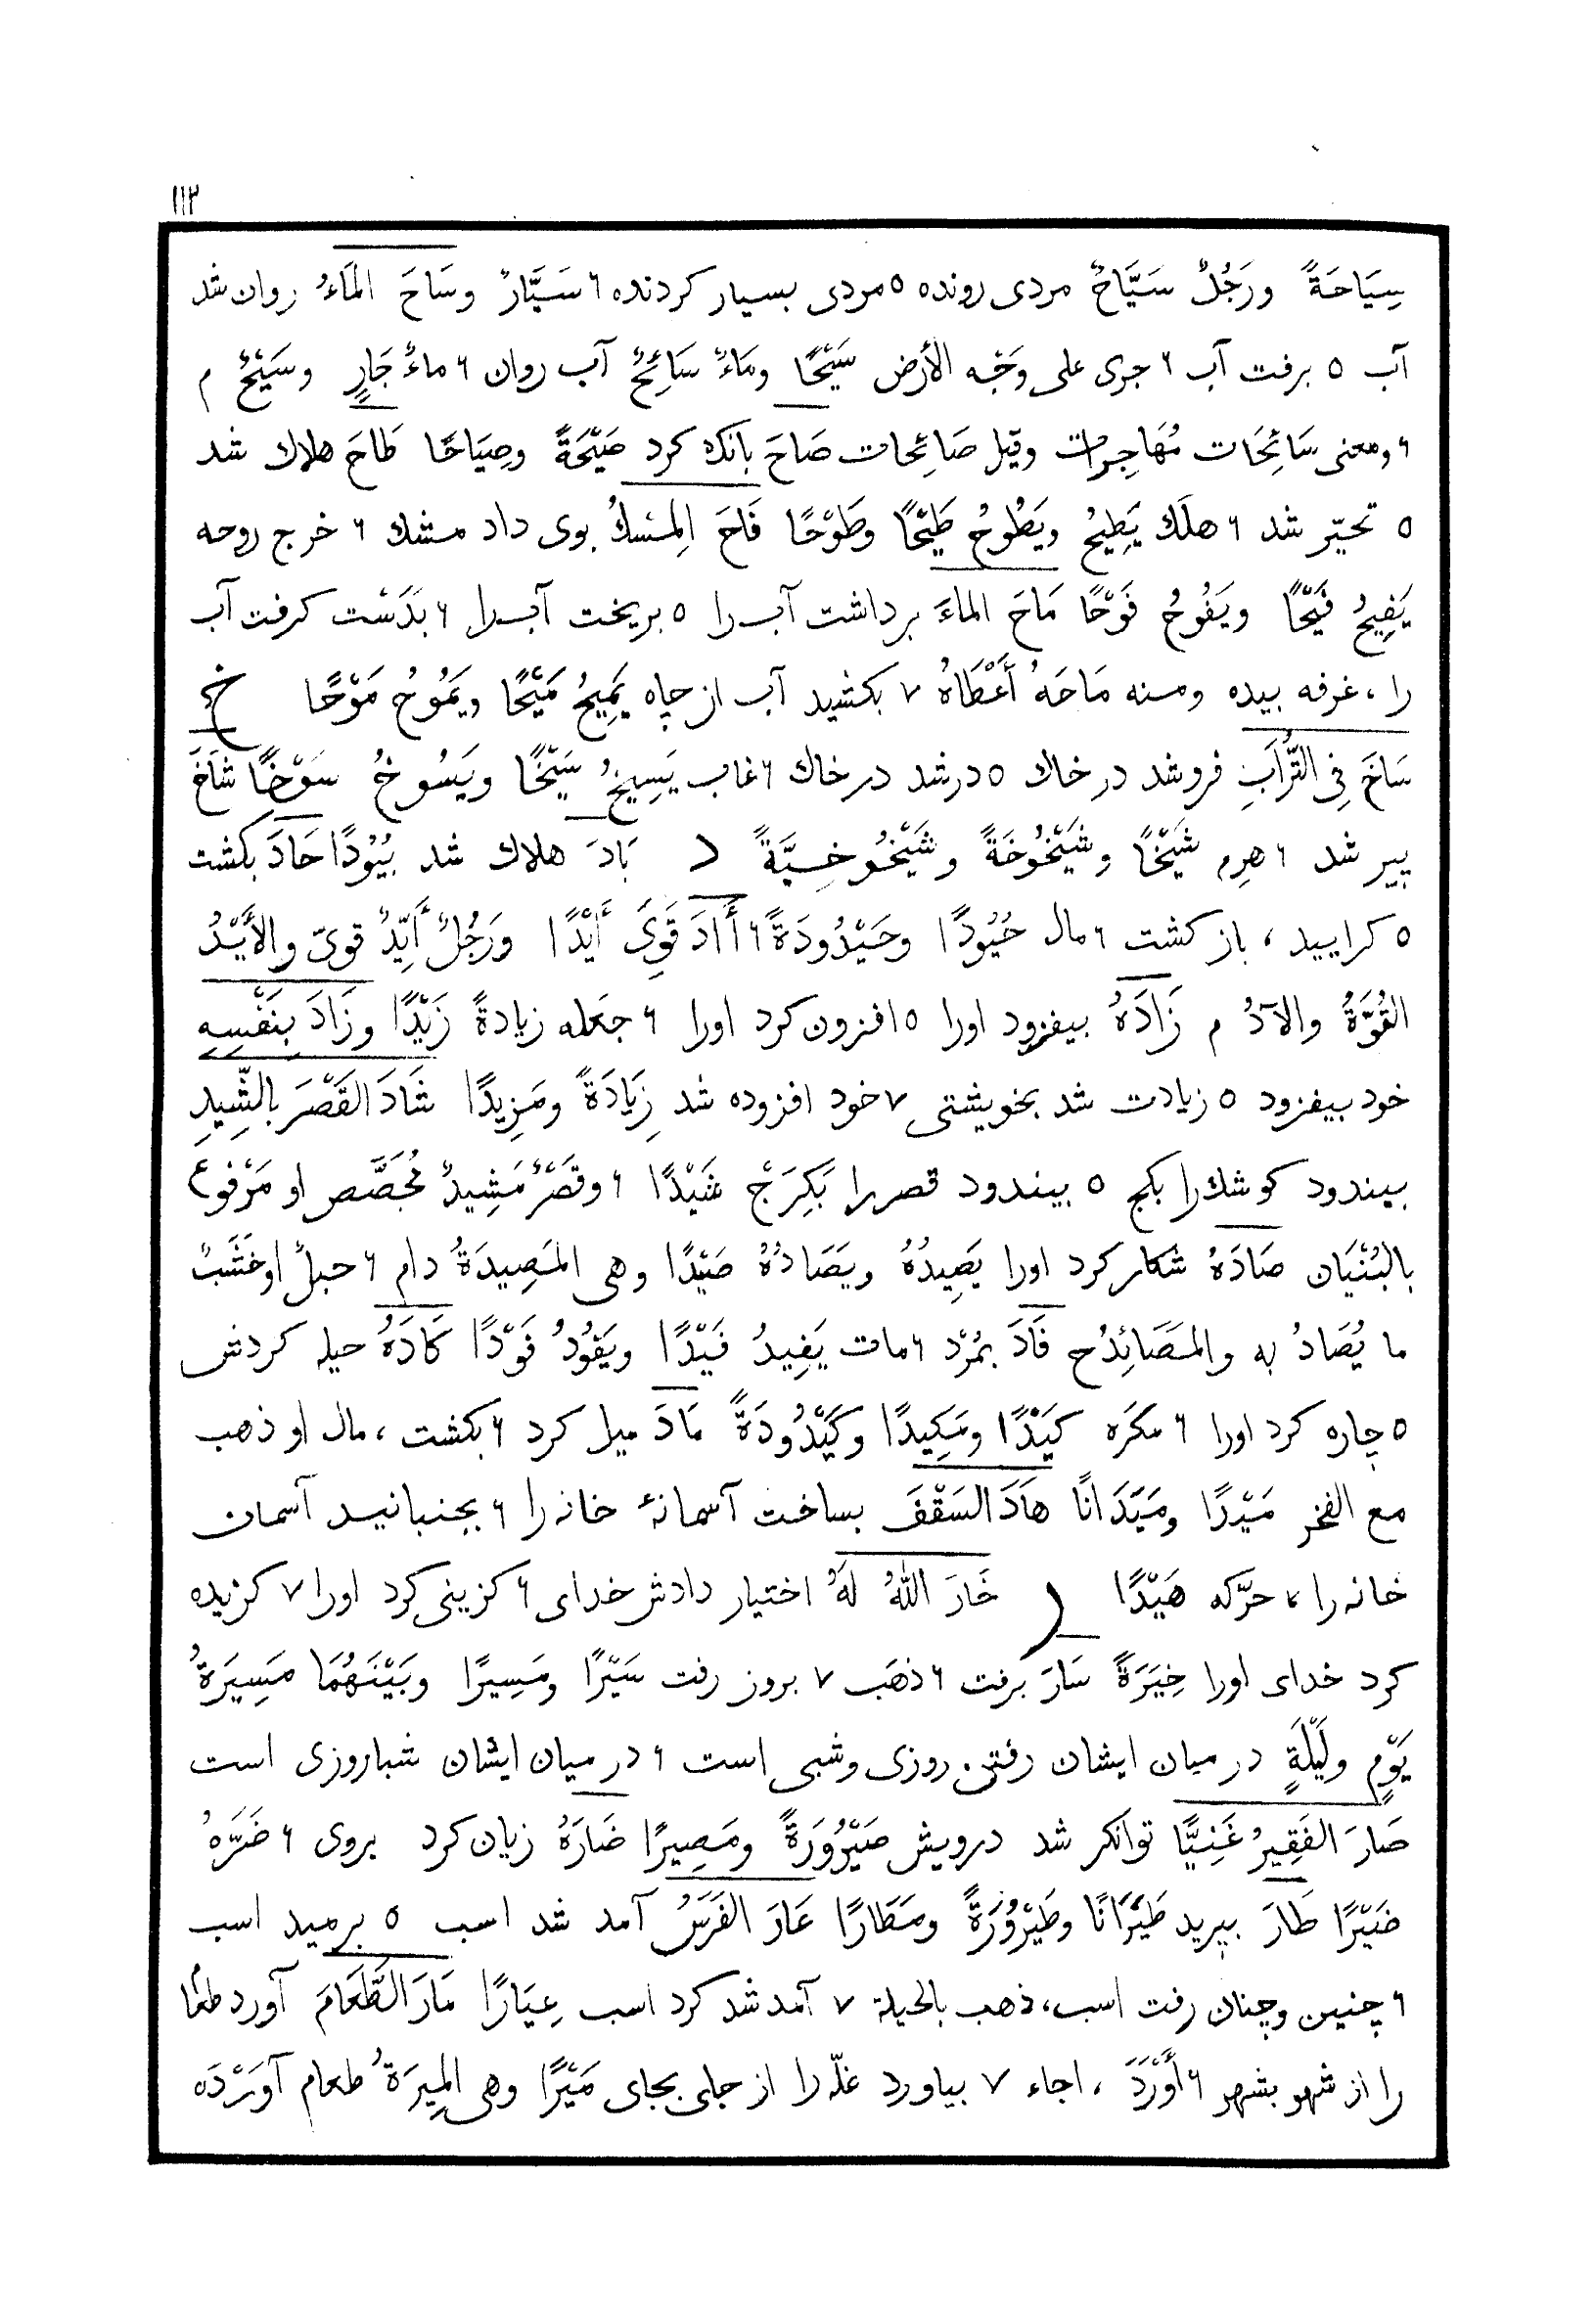 ١١٣
سِيَاحَةً ورَجُلٌ سَيَّاحٌ مردى رونده ٥ مردى بسيار كردنده ٦ سَيَّارٌ وسَاحَ المَاءُ روان شد
آب ٥ برفت آب ٦ جرى على وَجْه الأرض سَيْحًا ومَاءٌ سَائِحٌ آب روان ٦ ماءٌ جَارٍ وسَيْحٌ م
٦ ومعنى سَائِحَات مُهَاجِرات وقيل صَائِحات صَاحَ بانك كرد صَيْحَةً وصِيَاحًا طَاحَ هلاك شد
٥ تحيّر شد ٦ هلَك يَطِيحُ ويَطُوحُ طَيْحًا وطَوْحًا فَاحَ المِسْكُ بوى داد مشك ٦ خرج روحه
يَفِيحُ فَيْحًا ويَفُوحُ فَوْحًا مَاحَ الماءَ برداشت آب را ٥ بريخت آب را ٦ بدَسْت كرفت آب
را ، غرفه بيده ومنه مَاحَهُ أَعْطَاهُ ٧ بكشيد آب از چاه يَمِيحُ مَيْحًا ويَمُوحُ مَوْحًا خ
سَاخَ فِى التُّرَابِ فروشد در خاك ٥ درشد در خاك ٦ غاب يَسِيخُ سَيْخًا ويَسُوخُ سَوْخًا شَاخَ
پير شد ٦ هرِم شَيْخًا وشَيْخُوخَةً وشَيْخُوخِيَّةً د بَادَ هلاك شد بُيُودًا حَادَ بكشت
٥ كراييد ، باز كشت ٦ مال حُيُودًا وحَيْدُودَةً ٦ أَادَ قَوِىَ أَيْدًا ورَجُلٌ أَيِّدٌ قوىّ والأَيْدُ
القُوَّةُ والآدُ م زَادَهُ بيفزود اورا ٥ افزون كرد اورا ٦ جعَله زيادةً زَيْدًا وزَادَ بِنَفْسِهِ
خود بيفزود ٥ زيادت شد بخويشتى ٧ خود افزوده شد زِيَادَةً ومَزِيدًا شَادَ القَصْرَ بالشِّيدِ
بيندود كوشك را بكج ٥ بيندود قصر را بَكِرَجْ شَيْدًا ٦ وقَصْرٌ مَشِيدٌ مُجَصَّص او مَرْفوعٌ
بالبُنْيَان صَادَهُ شكار كرد اورا يَصِيدُهُ ويَصَادُهُ صَيْدًا وهى المَصِيدَةُ دام ٦ حبلٌ اوخَشَبٌ
ما يُصَادُ به والمَصَائِدُ ح فَادَ بمُرْد ٦ مات يَفِيدُ فَيْدًا ويَفُودُ فَوْدًا كَادَهُ حيله كردش
٥ چاره كرد اورا ٦ مكَره كَيْدًا ومَكِيدًا وكَيْدُودَةً مَادَ ميل كرد ٦ بكشت ، مال او ذهب
مع الفخر مَيْدًا ومَيَدَانًا هَادَ السَقْفَ بساخت آسمانهٔ خانه را ٦ بجنبانيد آسمان
خانه را ٧ حرّكه هَيْدًا ر خَارَ اللهُ لَهُ اختيار دادش خداى ٦ كزينى كرد اورا ٧ كزيده
كرد خداى اورا خِيَرَةً سَارَ برفت ٦ ذهَب ٧ بروز رفت سَيْرًا ومَسِيرًا وبَيْنَهُمَا مَسِيرَةُ
يَوْمٍ ولَيْلَةٍ در ميان ايشان رفتن روزى وشبى است ٦ در ميان ايشان شباروزى است
صَارَ الفَقِيرُ غَنِيًّا توانكر شد درويش صَيْرُورَةً ومَصِيرًا ضَارَهُ زيان كرد بروى ٦ ضَرَّهُ
ضَيْرًا طَارَ بپريد طَيَرَانًا وطَيْرُورَةً ومَطَارًا عَارَ الفَرَسُ آمد شد اسب ٥ برميد اسب
٦ چنين وچنان رفت اسب ، ذهب بالحيلة ٧ آمد شد كرد اسب عِيَارًا مَارَ الطَّعَامَ آورد طعام
را از شهر بشهر ٦ أَوْرَدَ ، اجاء ٧ بياورد غلّه را از جاى بجاى مَيْرًا وهى المِيرَةُ طعام آوَرْدَه